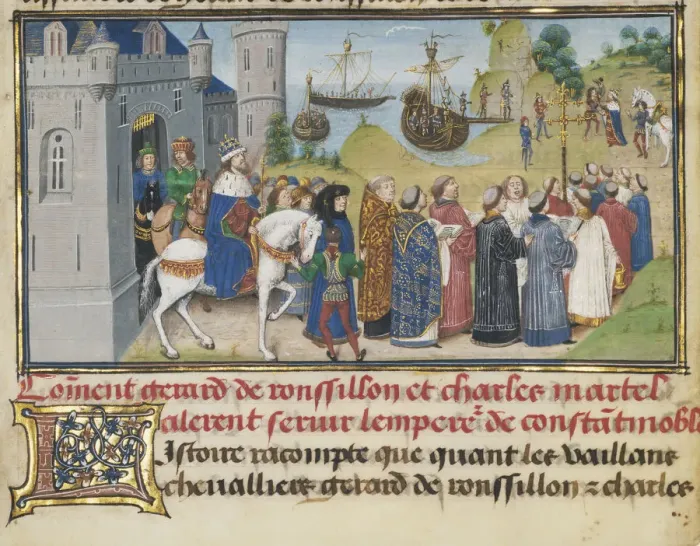 Comment gerard de roussillon et charles martel
alerent seruir lempere. de constãtinoble
Listoire racompte que quant les vaillans
cheualliers gerard de roussillon z charles